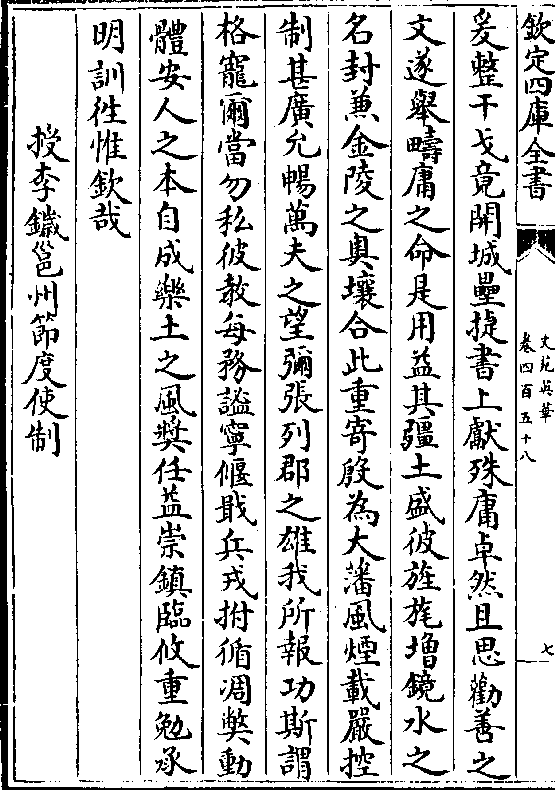 欽定四庫全書
文苑英華
卷四百五十八
七
爰整干戈竟開城壘捷書上獻殊庸卓然且思勸善之
文遂舉疇庸之命是用益其疆土盛彼旌旄増鏡水之
名封兼金陵之奥壤合此重寄殷為大藩風煙載嚴控
制甚廣允暢萬夫之望彌張列郡之雄我所報功斯謂
格寵爾當勿私彼教每務謐寧偃戢兵戎拊循凋弊動
體安人之本自成樂土之風奬任益崇鎮臨攸重勉承
明訓徃惟欽哉
授李鐬邕州節度使制